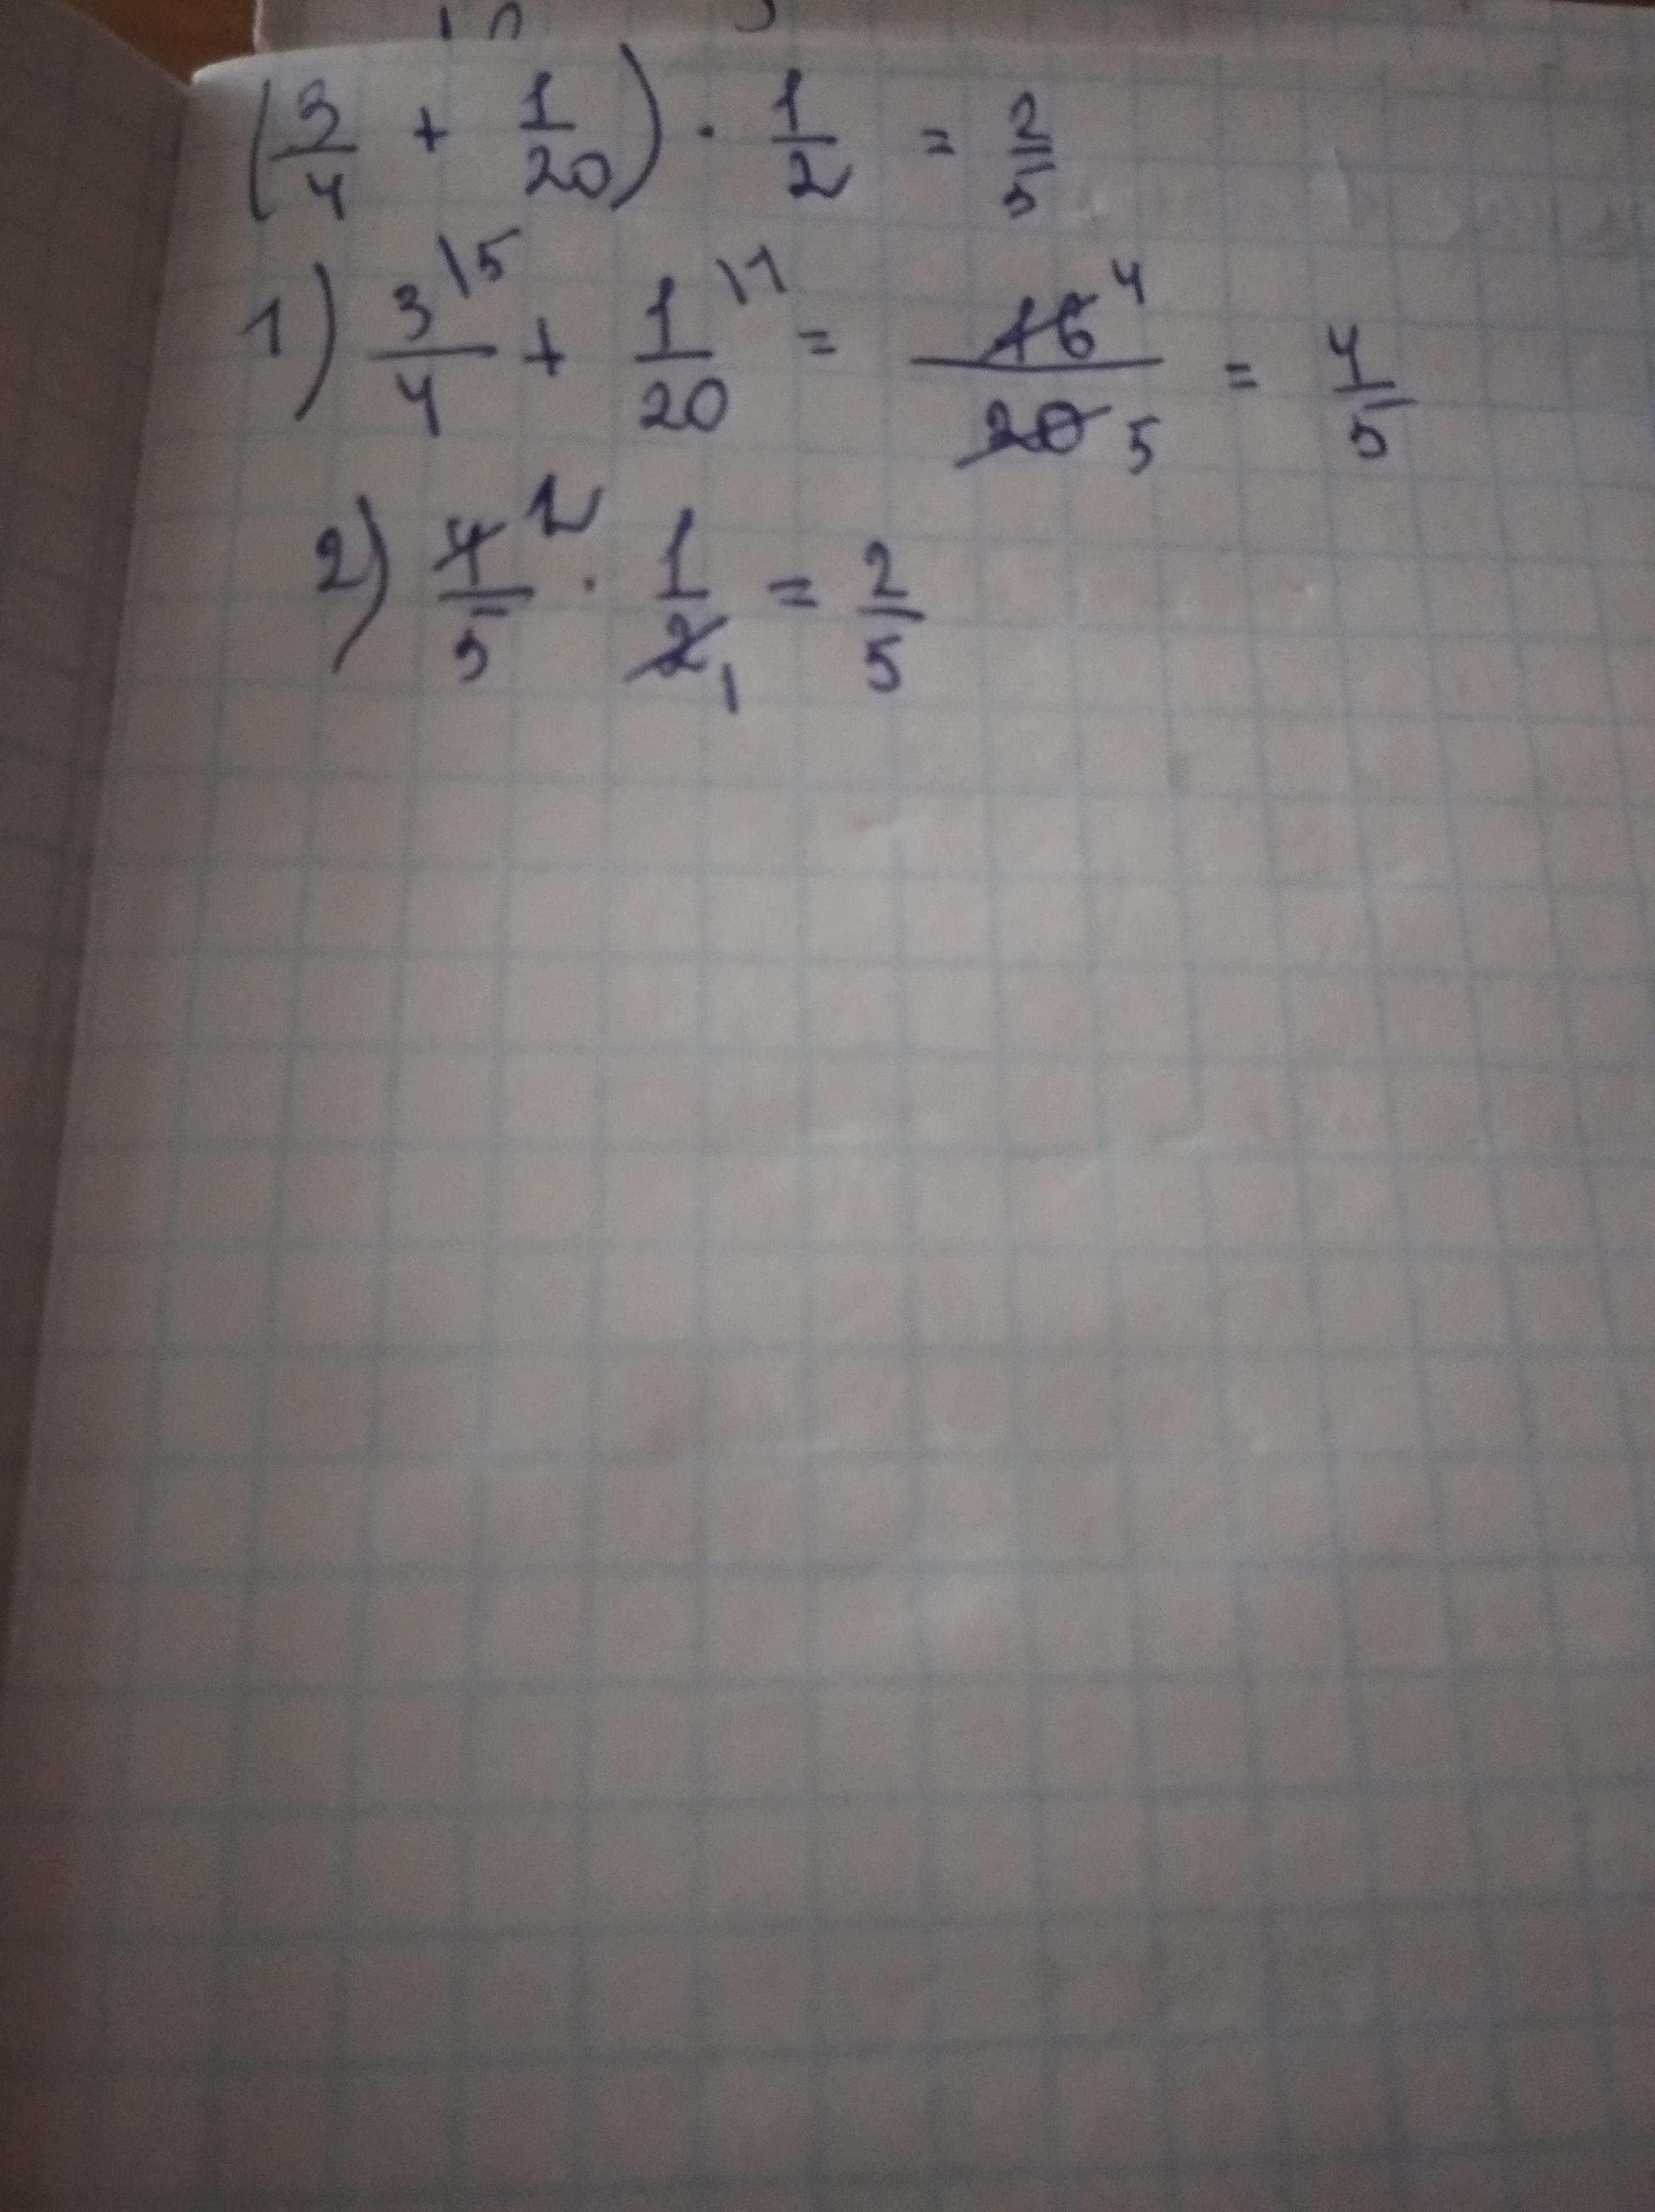 (3/4 + 1/20) · 1/2 = 2/5
1) 3\5/4 + 1\1/20 = 16 4/20 5 = 4/5
2) 4 2/5 · 1/2 1 = 2/5